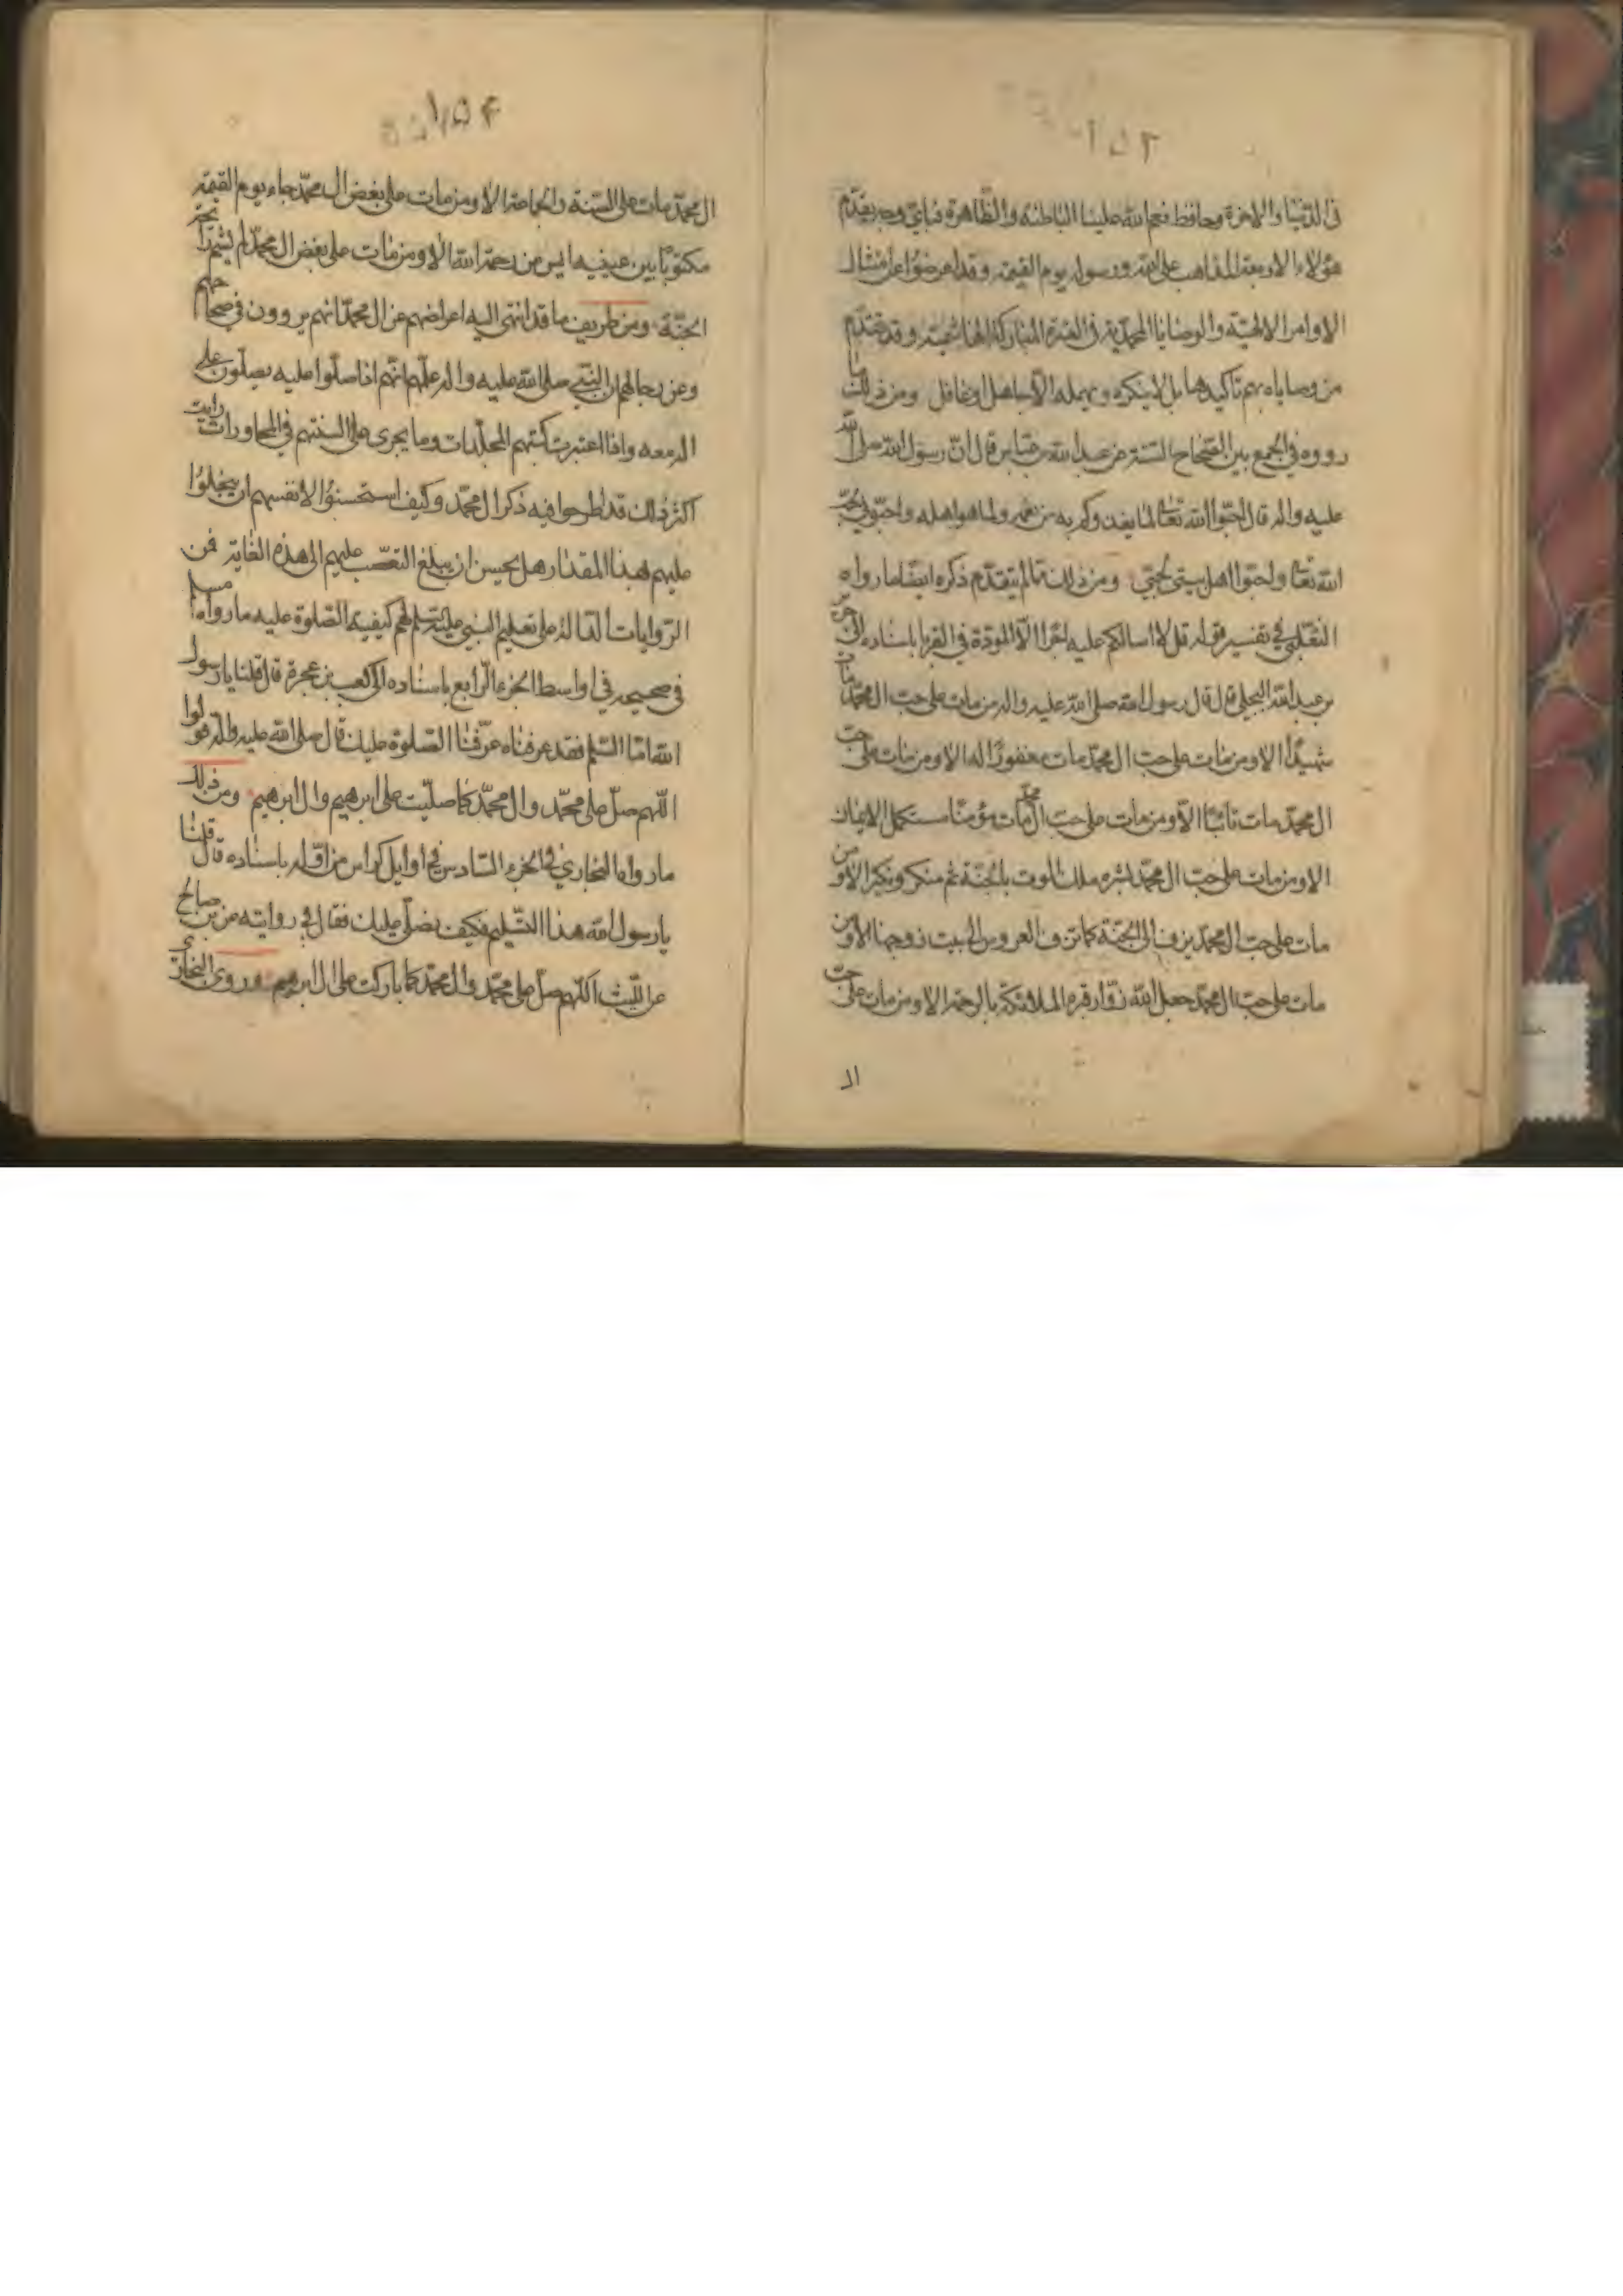 ١٥٣
فى الدنيا والاخرة وحافظ نعم الله علينا الباطنة والظاهرة فباى وجه يقدم
هؤلاء الاربعة المذاهب على الله ورسوله يوم القيمة وقد اعرضوا عن امتثال
الاوامر الالهية والوصايا المحمدية فى العترة المباركة الهاشمية وقد تقدم
من وصاياه بهم تاكيدها بل لا ينكره ويهمله الا جاهل او غافل ومن ذلك ما
رووه فى الجمع بين الصحاح الستة عن عبد الله بن عباس قال ان رسول الله صلى الله
عليه واله قال احبوا الله تعالى لما يغذوكم به من نعمه ولما هو اهله واحبونى لحب
الله تعالى واحبوا اهل بيتى لحبى ومن ذلك مما لم يتقدم ذكره ايضا ما رواه
الثعلبى فى تفسير قوله قل لا اسالكم عليه اجرا الا المودة فى القربى باسناده الى جرير
بن عبد الله البجلى قال قال رسول الله صلى الله عليه واله من مات على حب ال محمد مات
شهيدا الا ومن مات على حب ال محمد مات مغفورا له الا ومن مات على حب
ال محمد مات تائبا الا ومن مات على حب ال محمد مات مؤمنا مستكمل الايمان
الا ومن مات على حب ال محمد بشره ملك الموت بالجنة ثم منكر ونكير الا ومن
مات على حب ال محمد يزف الى الجنة كما تزف العروس الى بيت زوجها الا ومن
مات على حب ال محمد جعل الله زوار قبره الملائكة بالرحمة الا ومن مات على حب
ال
١٥٤
ال محمد مات على السنة والجماعة الا ومن مات على بغض ال محمد جاء يوم القيمة
مكتوبا بين عينيه ايس من رحمة الله الا ومن مات على بغض ال محمد لم يشم رائحة
الجنة ومن طريف ما قد انتهى اليه اعراضهم عن ال محمد انهم يروون فى صحاحهم
وعن رجالهم ان النبى صلى الله عليه واله علمهم انهم اذا صلوا عليه يصلون على
اله معه واذا اعتبرت كتبهم المجلدات وما يجرى على السنتهم فى المحاورات رايت
اكثر ذلك قد اطرحوا فيه ذكر ال محمد وكيف استحسنوا لانفسهم ان يبخلوا
عليهم بهذا المقدار هل يحسن ان يبلغ التعصب عليهم الى هذه الغاية فمن
الروايات الدالة على تعليم النبى عليه السلم لهم كيفية الصلوة عليه ما رواه مسلم
فى صحيحه فى اواسط الجزء الرابع باسناده الى كعب بن عجرة قال قلنا يا رسول
الله اما السلم فقد عرفناه عرفنا الصلوة عليك قال صلى الله عليه واله قولوا
اللهم صل على محمد وال محمد كما صليت على ابرهيم وال ابرهيم ومن ذلك
ما رواه البخارى فى الجزء السادس فى اوايل كراس من اوله باسناده قال قلنا
يا رسول الله هذا التسليم فكيف نصلى عليك فقال فى روايته عن بن صالح
عن الليث اللهم صل على محمد وال محمد كما باركت على ال ابرهيم وروى البخارى